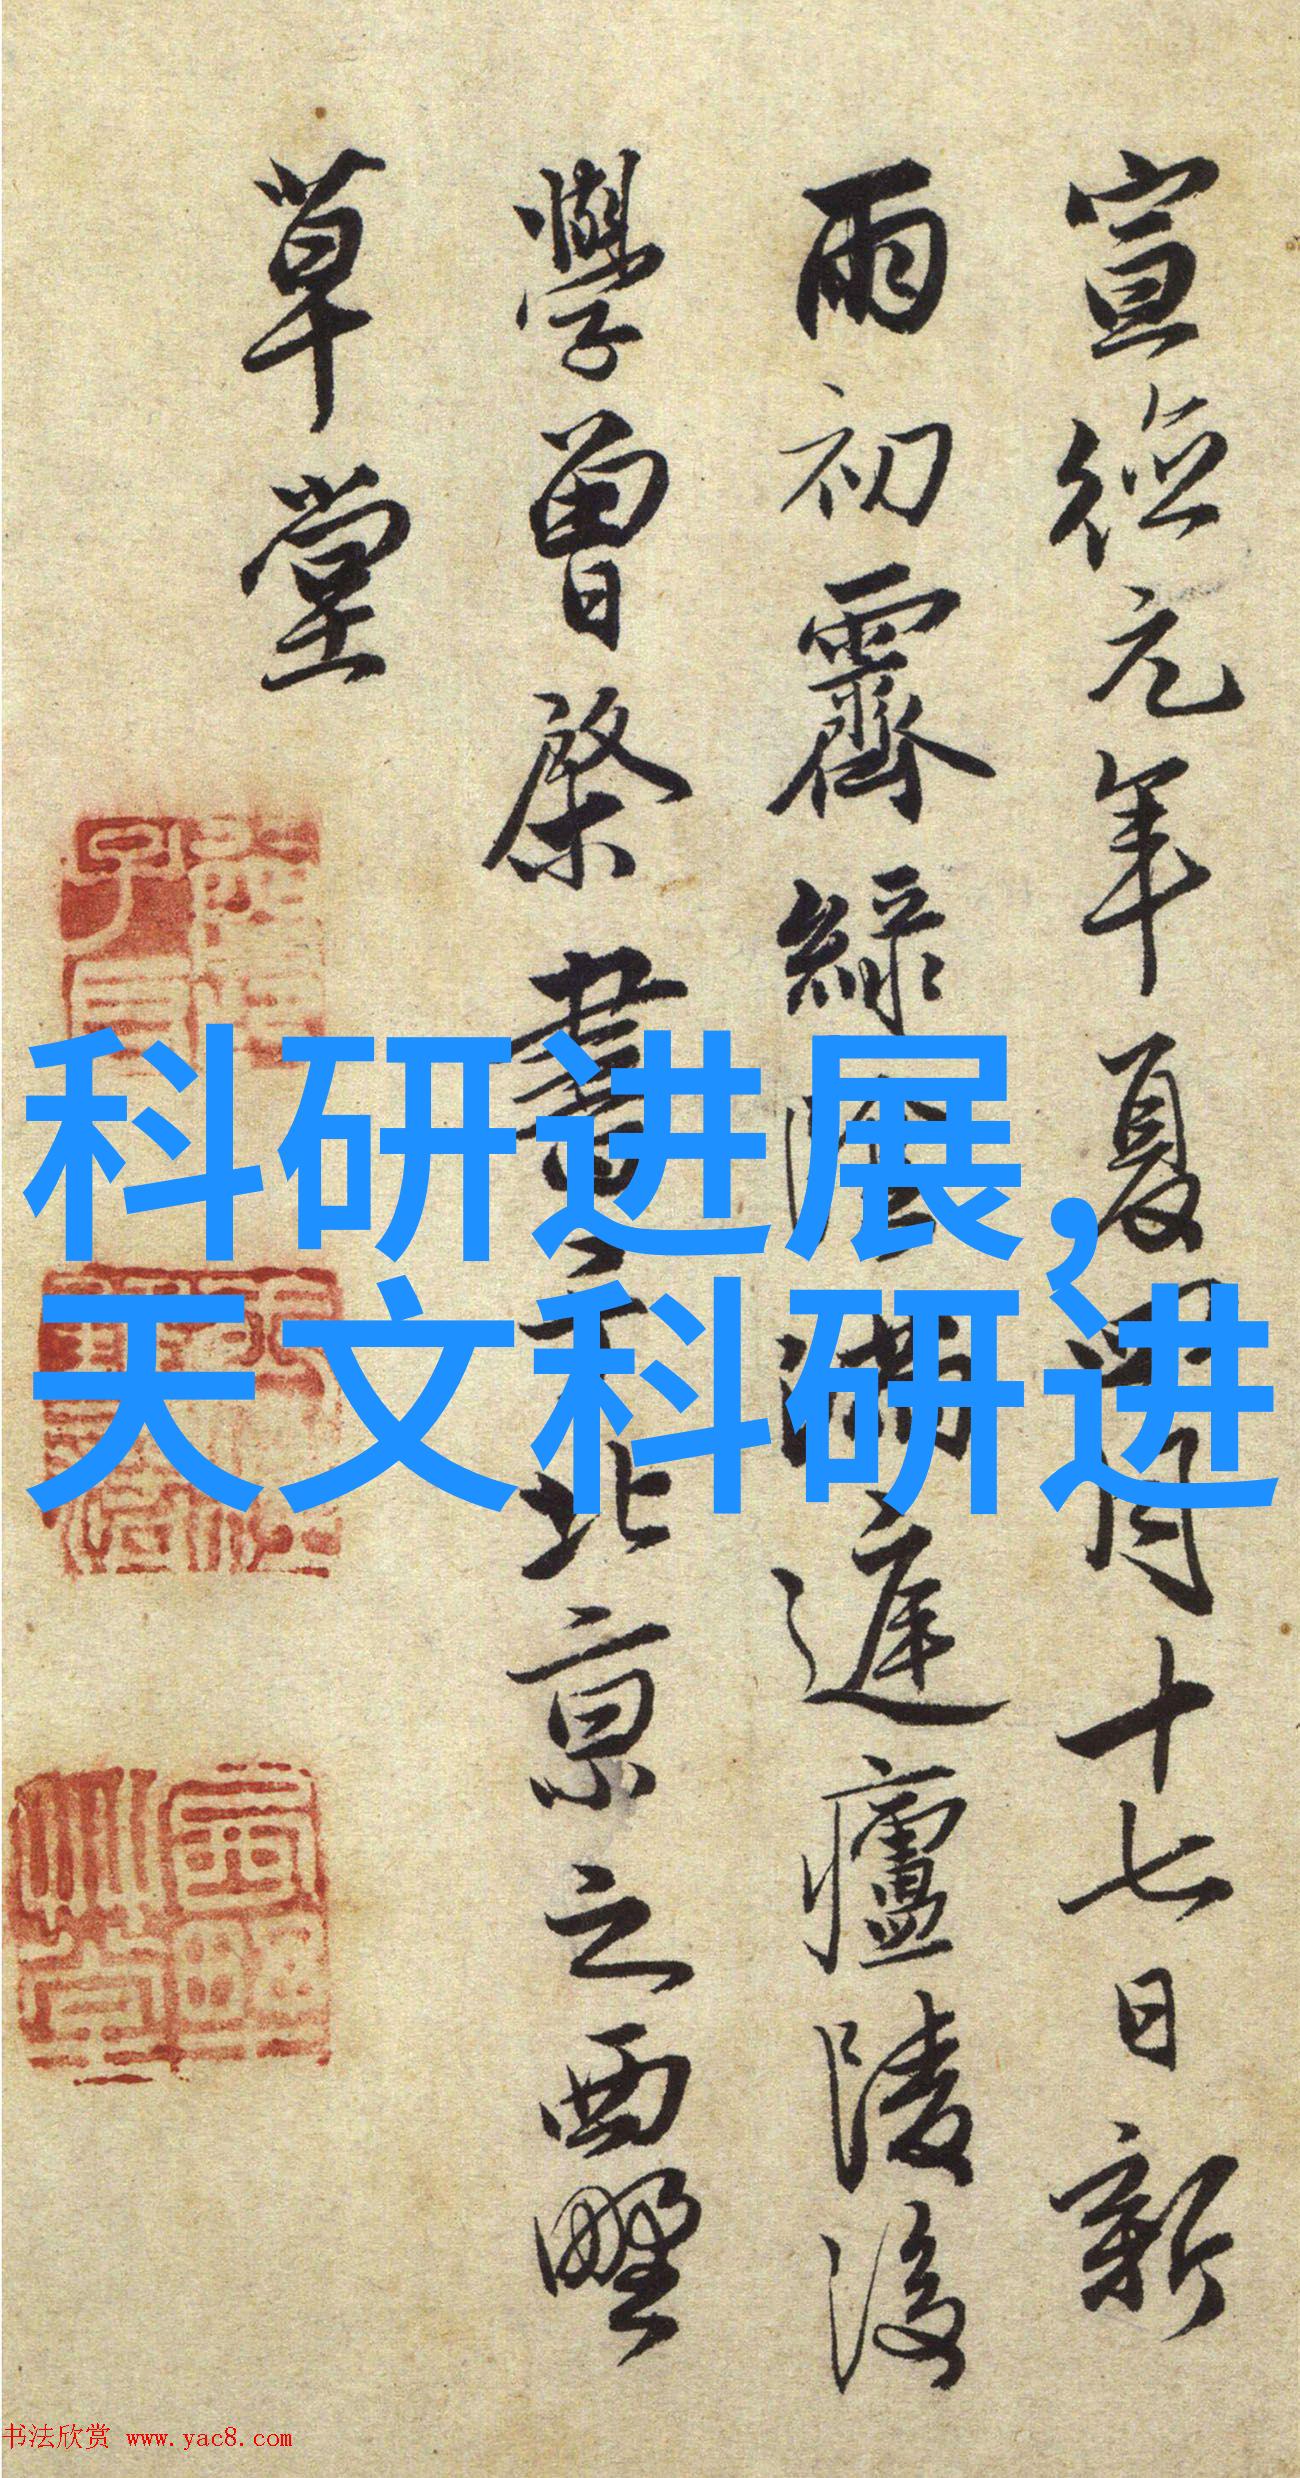 宣德元年夏四月十七日新
雨初霽綠陰滿庭廬陵後
學曾棨書于北京之西墅
草堂
科研进展,
天文科研进
书法欣赏 www.yac8.com